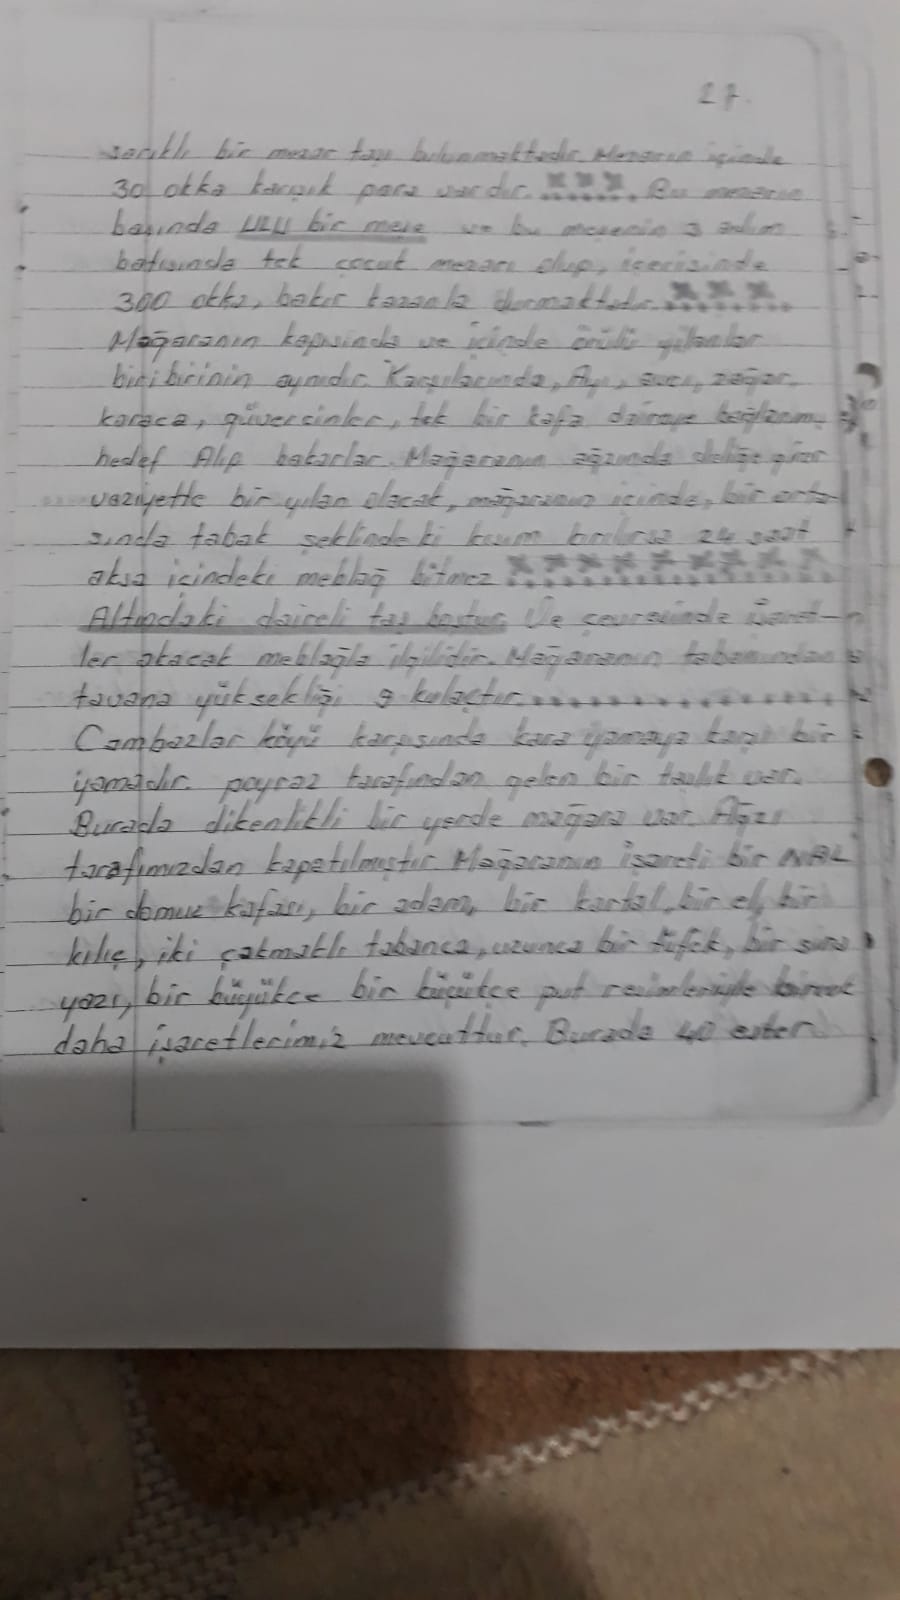 27.
sarıklı bir mezar taşı bulunmaktadır. Mezarın içinde
30 okka karışık para vardır. xxx. Bu mezarın
başında ULU bir meşe ve bu meşenin 3 adım
batısında tek çocuk mezarı olup, içerisinde
300 okka, bakır kazanla durmaktadır. xxx
Mağaranın kapısında ve içinde örülü yılanlar
biribirinin aynıdır. Karşılarında, Ayı, avcı, zağar,
karaca, güvercinler, tek bir kafa daireye bağlanmış
hedef Alıp bakarlar. Mağaranın ağzında deliğe girer
vaziyette bir yılan olacak, mağaranın içinde, bir orta-
sında tabak şeklindeki kısım kırılırsa 24 saat
aksa içindeki meblağ bitmez xxxxxxxxx
Altındaki daireli taş boştur. Ve çevresinde işaret-
ler akacak meblağla ilgilidir. Mağaranın tabanından
tavana yüksekliği 9 kulaçtır...............
Cambazlar köyü karşısında kara yamaya karşı bir
yamadır. poyraz tarafından gelen bir taşlık var.
Burada dikenlikli bir yerde mağara var. Ağzı
tarafımızdan kapatılmıştır. Mağaranın işareti bir NAL
bir domuz kafası, bir adam, bir kartal, bir el, bir
kılıç, iki çakmaklı tabanca, uzunca bir tüfek, bir sıra
yazı, bir büyükçe bir küçükçe put resimleriyle
daha işaretlerimiz mevcuttur. Burada 40 ester